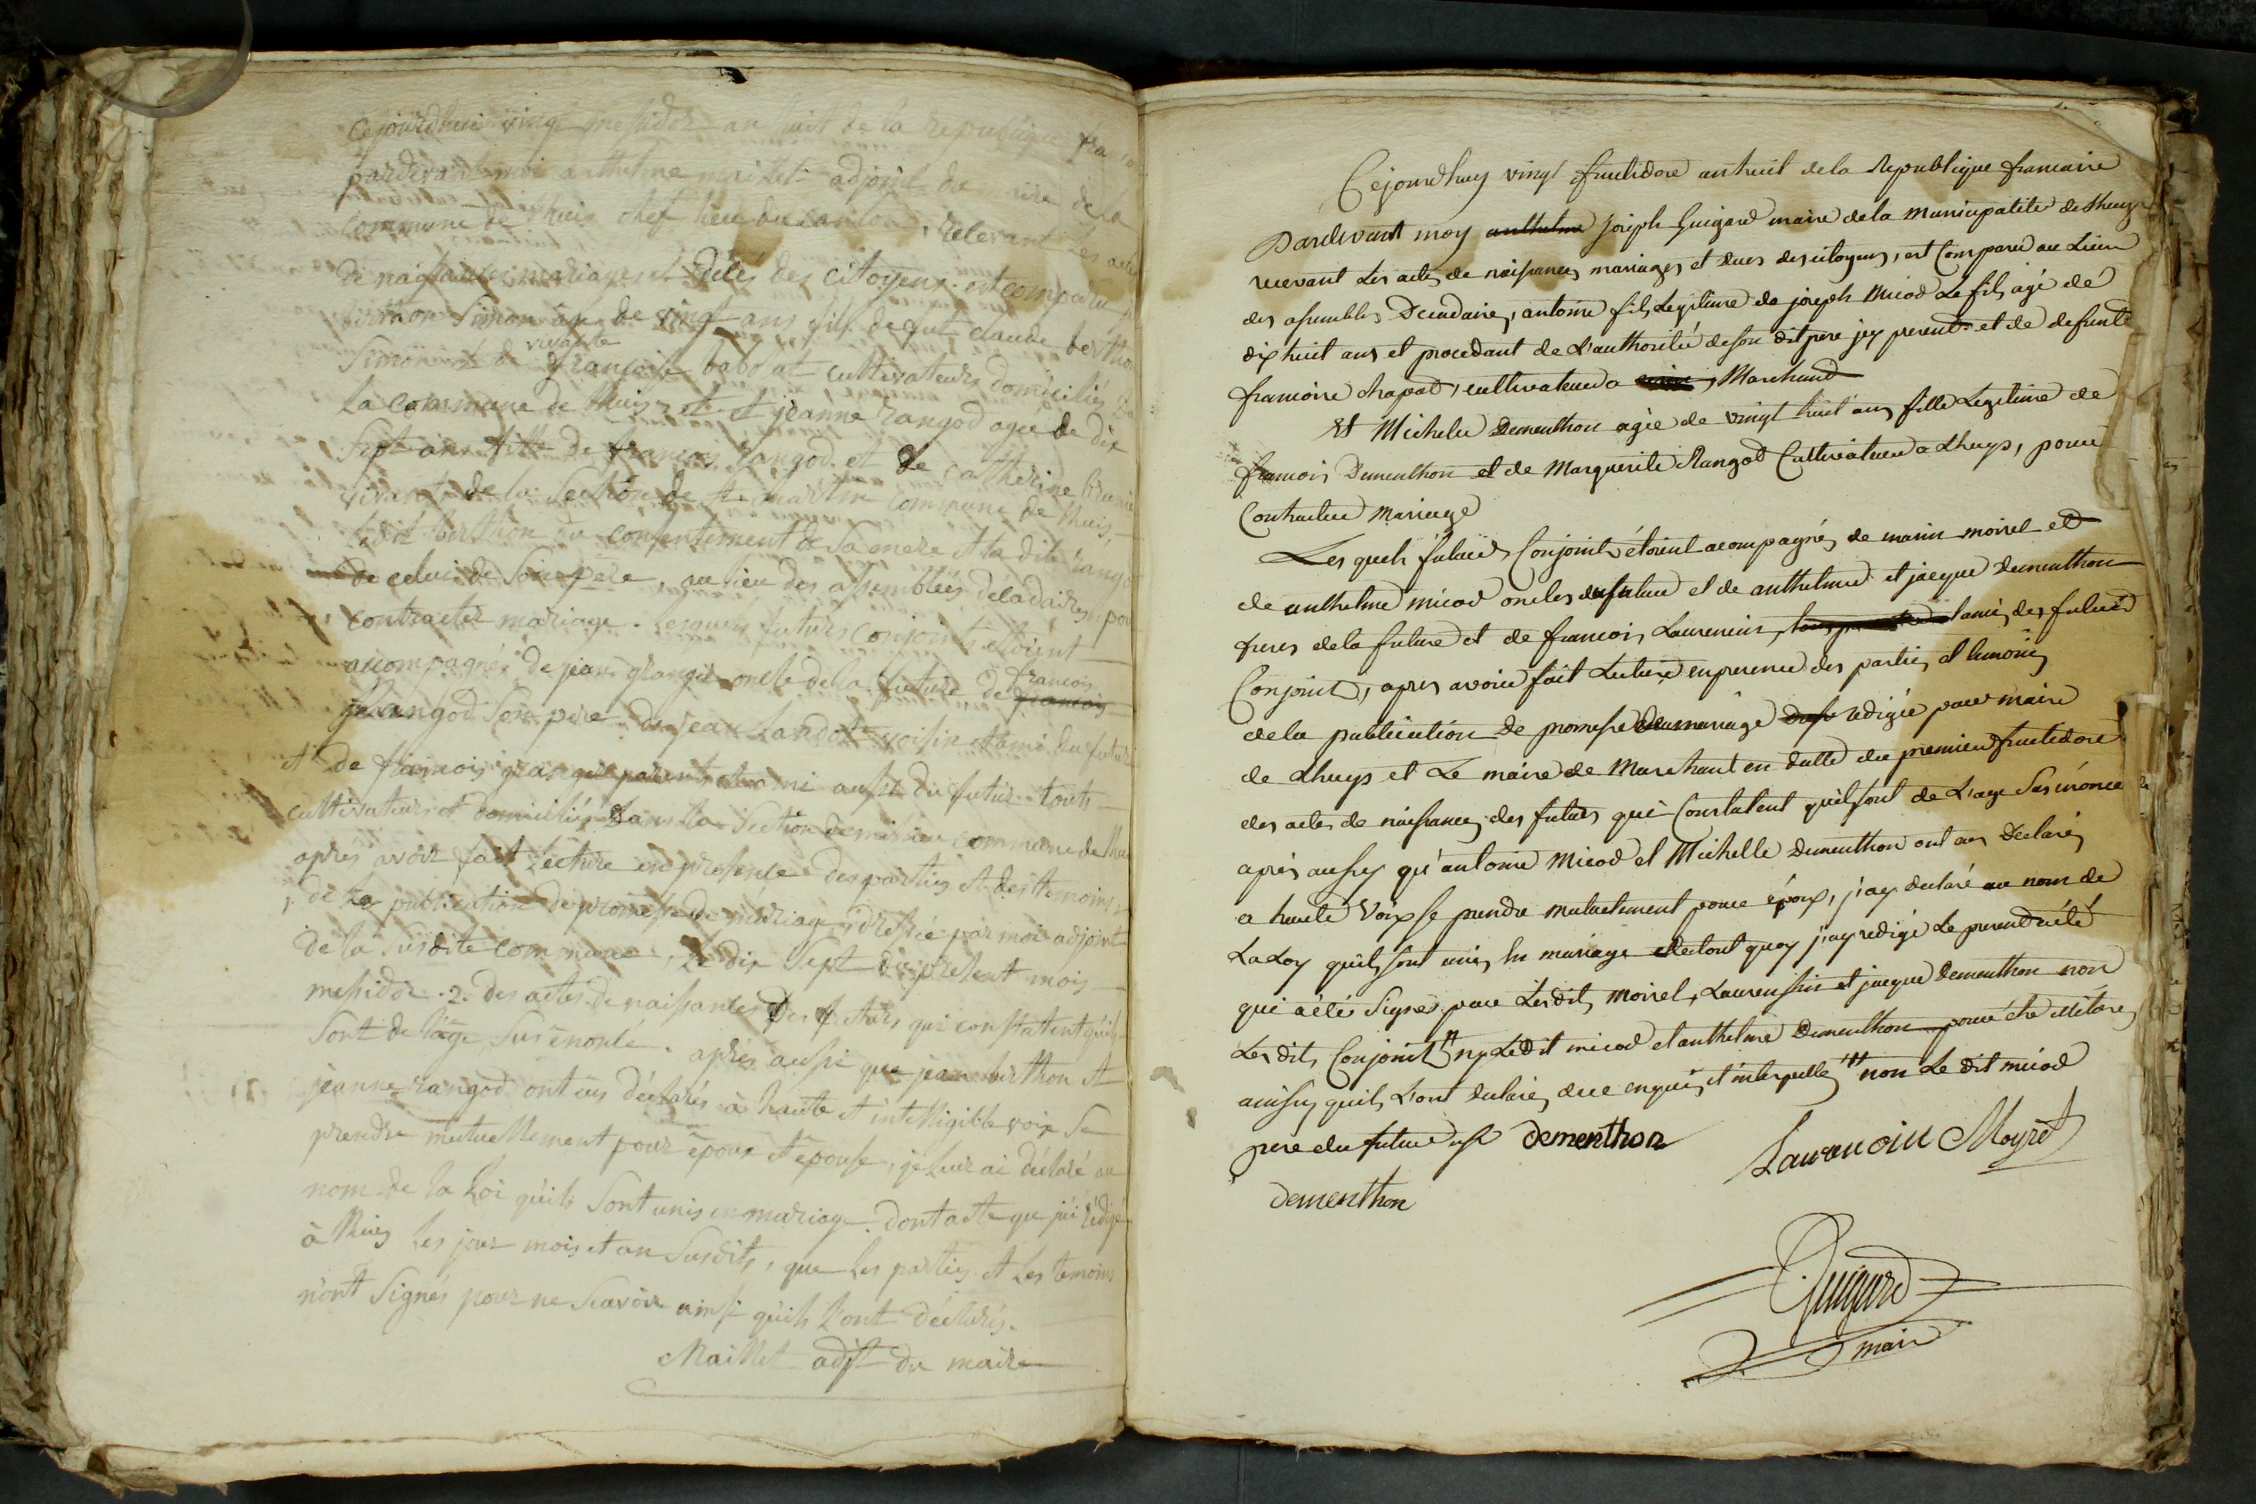 Cejourdhui vingt messidor an huit de la republique
pardevant moi anthelme maillet adjoint du maire de la
commune de thuis chef lieu du canton, relevant les actes
de naissances mariages et décés des citoyens. est comparu
berthon Simon agé de vingt ans fils de fut claude berthon
Simon et de vivante françoise babolat cultivateurs domiciliés
la commune de thuis et jeanne rangod agée de dix
sept ans fille de francois rangod et de catherine
vivants de la Section de st. martin commune de thuis,
ledit berthon du consentement de sa mere et la dite rangod
de celui de Son pere, au lieu des assemblées décadaires, pour
contracter mariage. Lesquels futurs conjoints etoient
accompagnés de jean grangé oncle de la future de francois
Rangod Son pere de jean Landot voisin et ami du futur
et de francois grangé parent et ami aussi du futur touts
cultivateurs et domiciliés dans la Section demisieu commune de thuis
apres avoir fait Lecture en presence des parties et des temoins
1. de la publication de promesse de mariage, dressée par moi adjoint
de la susdite commune, le dix Sept du present mois
messidor. 2. des actes de naissances des futurs qui constatent qu'ils
Sont de l'age Susénoncé. apres aussi que jean berthon et
jeanne rangod ont eus déclarés à haute et intelligible voix Se
prendre mutuellement pour époux et épouse, je leur ai déclaré au
nom de la Loi qu'ils Sont unis en mariage. dont acte que j'ai rédigé
à thuis les jour mois et an Susdits, que les parties et Les temoins
n'ont Signés pour ne Scavoir ainsi qu'ils l'ont déclarés.
Maillet adjt du maire
Cejourdhuy vingt fructidore an huit de la Republique francaise
Pardevant moy anthelme joseph Guigard maire de la Municipalité de Lhuys
recevant Les actes de naissances mariages et deces des citoyens, est Comparu au Lieu
des assemblés Decadaire, antoine fils Legitime de joseph Micod Le fils agé de
dix huit ans et procedant de L'authorité de son dit pere jcy present et de defunte
francoise chapot, cultivateur a Marchand
Et Michele Dementhon agée de vingt huit ans fille Legitime de
francois Dementhon et de Marguerite Rangod Cultivateur a Lhuys, pour
Contracter Mariage
Les quels futurs Conjoints étoient acompagnés de marin moirel et
de anthelme micod oncles du future et de anthelme et jacque Dementhon
freres de la future et de francois Laurencin, l'ami des futurs
Conjoints, apres avoir fait Lecture en presence des parties et temoins
de la publication de promesse de mariage redigée par maire
de Lhuys et Le maire de Marchant en datte du premier fructidore
des actes de naissances des futurs qui Constatent qu'ils sont de L'age Susénoncé
apres aussy qu'antoine Micod et Michelle Dementhon ont eus Declarés
a haute Voix se prendre mutuelement pour époux, j'ay declaré au nom de
La Loy qu'ils sont unis En mariage et de tout quoy j'ay redigé Le present acte
qui a été Signés par Lesdits Moirel, Laurensin et jacque Dementhon non
Les dits Conjoints ny Ledit micod et anthelme Dementhon pour étre illitéré
ainsy quils L'ont declarés de ce enquis et interpellé non Le dit micod
pere du future dementhon Lauranoin Moyret
dementhon
Guigard
maire